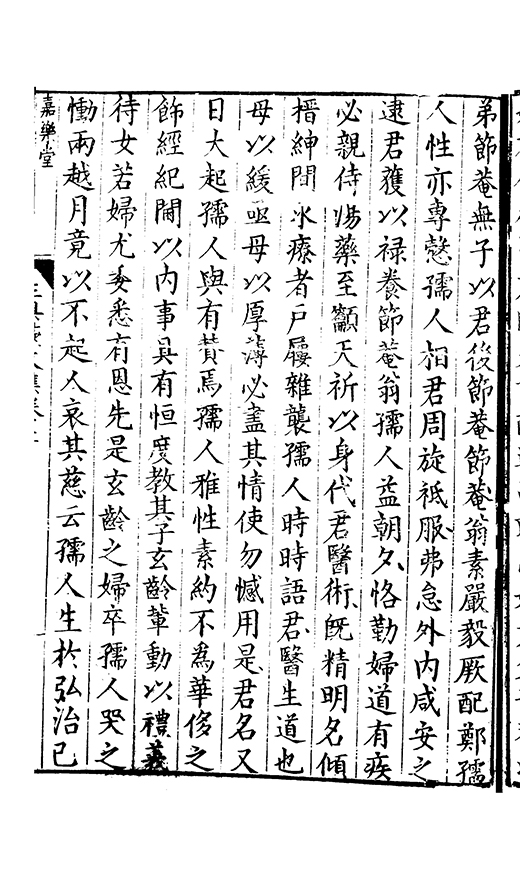 弟節菴無子以君後節菴節菴翁素嚴毅厥配鄭孺
人性亦專慤孺人相君周旋祗服弗怠外内咸安之
逮君獲以禄養節菴翁孺人益朝夕恪勤婦道有疾
必親侍湯藥至籲天祈以身代君醫術既精明名傾
搢紳間求療者戸屨雜襲孺人時時語君醫生道也
母以緩亟母以厚薄必盡其情使勿憾用是君名又
日大起孺人與有賛焉孺人雅性素約不為華侈之
飾經紀閫以内事具有恒度教其子玄齡軰動以禮義
待女若婦尤委悉有恩先是玄齡之婦卒孺人哭之
慟兩越月竟以不起人哀其慈云孺人生於弘治己
嘉樂堂